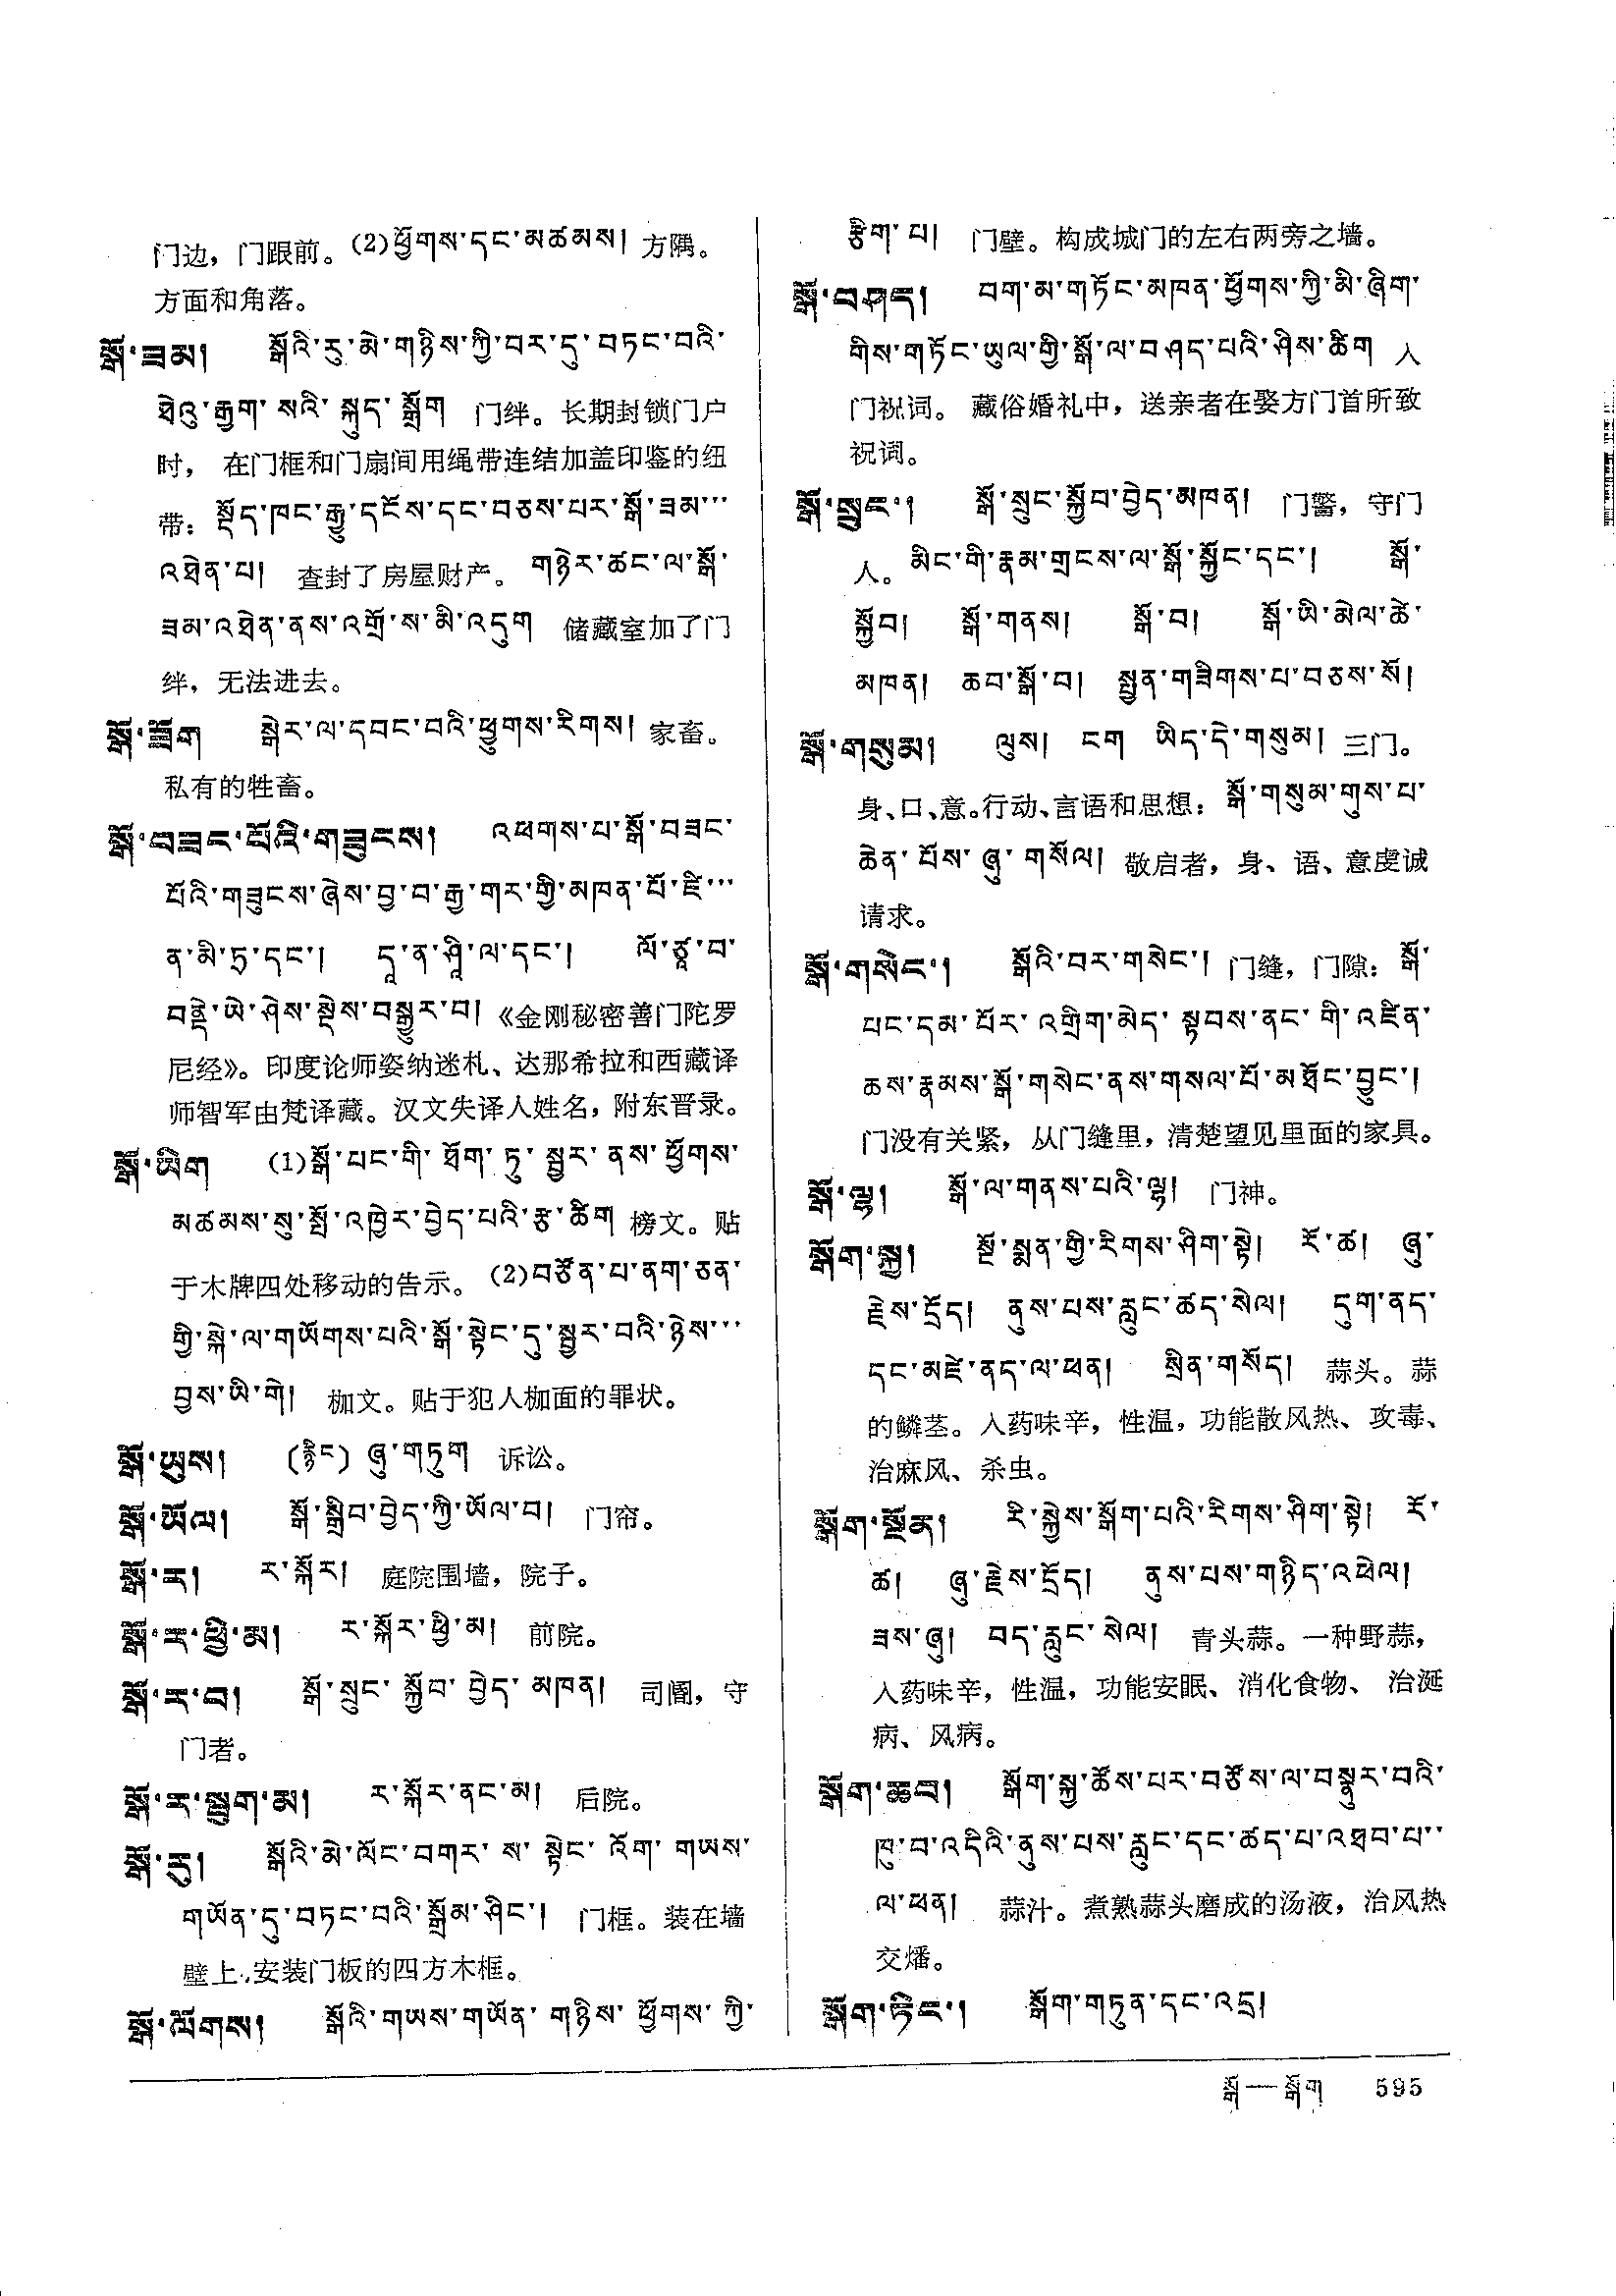 门边，门跟前。(2)ཕྱོགས་དང་མཚམས། 方隅。
方面和角落。
སྒོ་ཟམ། སྒོའི་རུ་མེ་གཉིས་ཀྱི་བར་དུ་བཏང་བའི་
ཐེའུ་རྒྱག་སའི་སྐུད་སྒྲོག 门绊。长期封锁门户
时，在门框和门扇间用绳带连结加盖印鉴的纽
带：སྡོད་ཁང་རྒྱུ་དངོས་དང་བཅས་པར་སྒོ་ཟམ་་་
འཐེན་པ། 查封了房屋财产。གཉེར་ཚང་ལ་སྒོ་
ཟམ་འཐེན་ནས་འགྲོ་ས་མི་འདུག 储藏室加了门
绊，无法进去。
སྒོ་ཟོག སྒེར་ལ་དབང་བའི་ཕྱུགས་རིགས། 家畜。
私有的牲畜。
སྒོ་བཟང་པོའི་གཟུངས། འཕགས་པ་སྒོ་བཟང་
པོའི་གཟུངས་ཞེས་བྱ་བ་རྒྱ་གར་གྱི་མཁན་པོ་ཛི་་་
ན་མི་ཏྲ་དང་། དཱ་ན་ཤཱི་ལ་དང་། ལོ་ཙཱ་བ་
བནྡེ་ཡེ་ཤེས་སྡེས་བསྒྱུར་བ། 《金刚秘密善门陀罗
尼经》。印度论师姿纳迷札、达那希拉和西藏译
师智军由梵译藏。汉文失译人姓名，附东晋录。
སྒོ་ཡིག (1)སྒོ་པང་གི་ཐོག་ཏུ་སྦྱར་ནས་ཕྱོགས་
མཚམས་སུ་སྤོ་འཁྱེར་བྱེད་པའི་རྩ་ཚིག 榜文。贴
于木牌四处移动的告示。(2)བཙོན་པ་ནག་ཅན་
གྱི་སྐེ་ལ་གཡོགས་པའི་སྒོ་སྟེང་དུ་སྦྱར་བའི་ཉེས་་་
བྱས་ཡི་གེ། 枷文。贴于犯人枷面的罪状。
སྒོ་ཡུས། (རྙིང) ཞུ་གཏུག 诉讼。
སྒོ་ཡོལ། སྒོ་སྒྲིབ་བྱེད་ཀྱི་ཡོལ་བ། 门帘。
སྒོ་ར། ར་སྐོར། 庭院围墙，院子。
སྒོ་ར་ཕྱི་མ། ར་སྐོར་ཕྱི་མ། 前院。
སྒོ་ར་བ། སྒོ་སྲུང་སྐྱོབ་བྱེད་མཁན། 司阍，守
门者。
སྒོ་ར་སྦུག་མ། ར་སྐོར་ནང་མ། 后院。
སྒོ་རུ། སྒོའི་མེ་ལོང་བགར་ས་སྟེང་འོག་གཡས་
གཡོན་དུ་བཏང་བའི་སྒྲོམ་ཤིང་། 门框。装在墙
壁上，安装门板的四方木框。
སྒོ་ལོགས། སྒོའི་གཡས་གཡོན་གཉིས་ཕྱོགས་ཀྱི་
རྩིག་པ། 门壁。构成城门的左右两旁之墙。
སྒོ་བཤད། བག་མ་གཏོང་མཁན་ཕྱོགས་ཀྱི་མི་ཞིག་
གིས་གཏོང་ཡུལ་གྱི་སྒོ་ལ་བཤད་པའི་ཤིས་ཚིག 入
门祝词。藏俗婚礼中，送亲者在娶方门首所致
祝词。
སྒོ་སྲུང་། སྒོ་སྲུང་སྐྱོབ་བྱེད་མཁན། 门警，守门
人。མིང་གི་རྣམ་གྲངས་ལ་སྒོ་སྐྱོང་དང་། སྒོ་
སྐྱོབ། སྒོ་གནས། སྒོ་བ། སྒོ་ཡི་མེལ་ཚེ་
མཁན། ཆབ་སྒོ་བ། སྤྱན་གཟིགས་པ་བཅས་སོ།
སྒོ་གསུམ། ལུས། ངག ཡིད་དེ་གསུམ། 三门。
身、口、意。行动、言语和思想：སྒོ་གསུམ་གུས་པ་
ཆེན་པོས་ཞུ་གསོལ། 敬启者，身、语、意虔诚
请求。
སྒོ་གསེང་། སྒོའི་བར་གསེང་། 门缝，门隙：སྒོ་
པང་དམ་པོར་འགྲིག་མེད་སྟབས་ནང་གི་འཛིན་
ཆས་རྣམས་སྒོ་གསེང་ནས་གསལ་པོ་མཐོང་བྱུང་།
门没有关紧，从门缝里，清楚望见里面的家具。
སྒོ་ལྷ། སྒོ་ལ་གནས་པའི་ལྷ། 门神。
སྒོག་སྐྱ། སྔོ་སྨན་གྱི་རིགས་ཤིག་སྟེ། རོ་ཚ། ཞུ་
རྗེས་དྲོད། ནུས་པས་རླུང་ཚད་སེལ། དུག་ནད་
དང་མཛེ་ནད་ལ་ཕན། སྲིན་གསོད། 蒜头。蒜
的鳞茎。入药味辛，性温，功能散风热、攻毒、
治麻风、杀虫。
སྒོག་སྔོན། རི་སྐྱེས་སྒོག་པའི་རིགས་ཤིག་སྟེ། རོ་
ཚ། ཞུ་རྗེས་དྲོད། ནུས་པས་གཉིད་འཕེལ།
ཟས་ཞུ། བད་རླུང་སེལ། 青头蒜。一种野蒜，
入药味辛，性温，功能安眠、消化食物、治涎
病、风病。
སྒོག་ཆབ། སྒོག་སྐྱ་ཚོས་པར་བཙོས་ལ་བསྣུར་བའི་
ཁུ་བ་འདིའི་ནུས་པས་རླུང་དང་ཚད་པ་འཐབ་པ་་
ལ་ཕན། 蒜汁。煮熟蒜头磨成的汤液，治风热
交燔。
སྒོག་ཏིང་། སྒོག་གཏུན་དང་འདྲ།
སྒོ—སྒོག 595